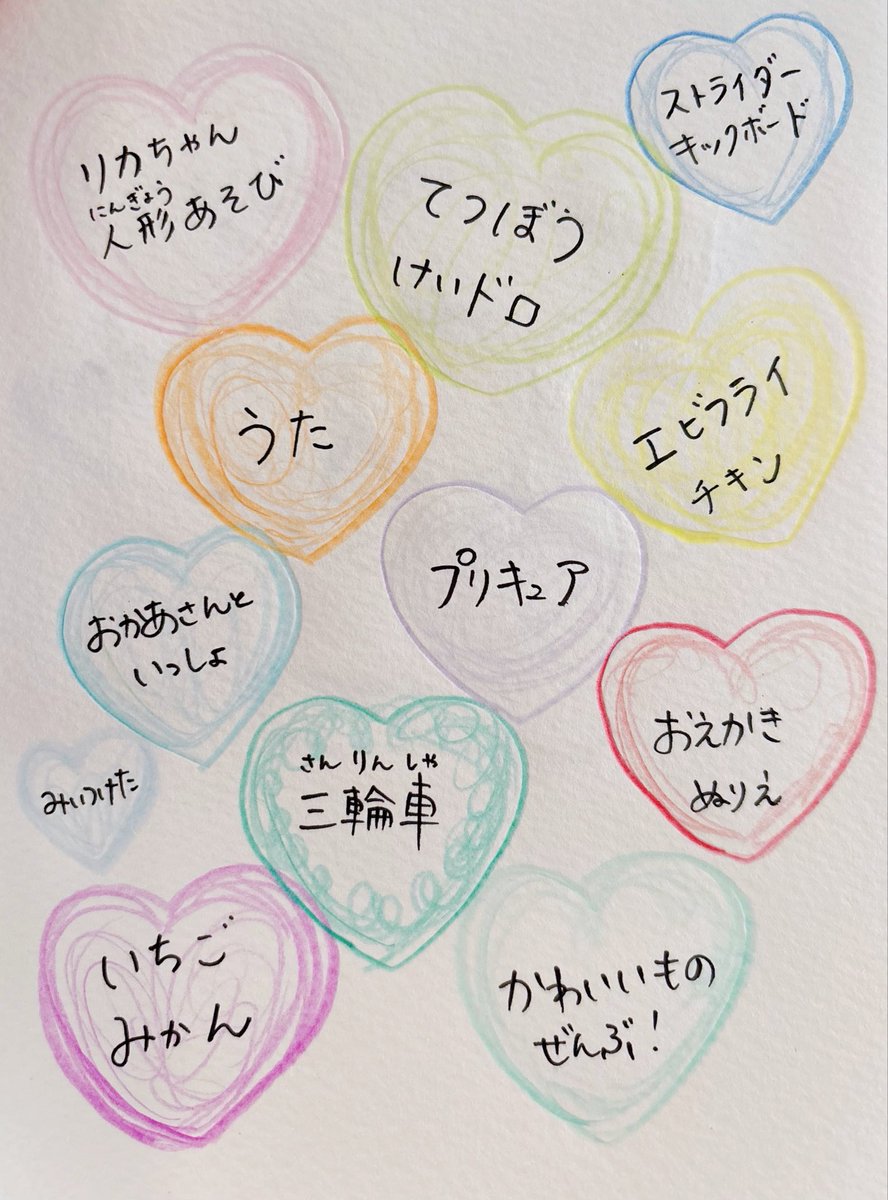 リカちゃん
にんぎょう
人形あそび
てつぼう
けいドロ
ストライダー
キックボード
うた
エビフライ
チキン
おかあさんと
いっしょ
プリキュア
みいつけた
さんりんしゃ
三輪車
おえかき
ぬりえ
いちご
みかん
かわいいもの
ぜんぶ!